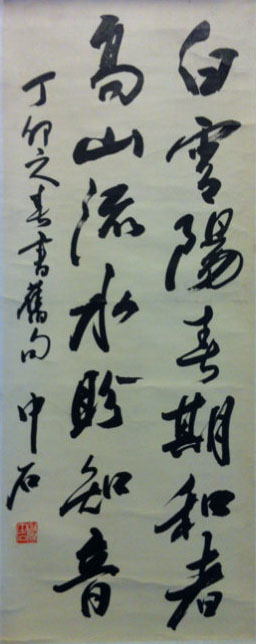 白雪陽春期和者
高山流水盼知音
丁卯之春書舊句 中石